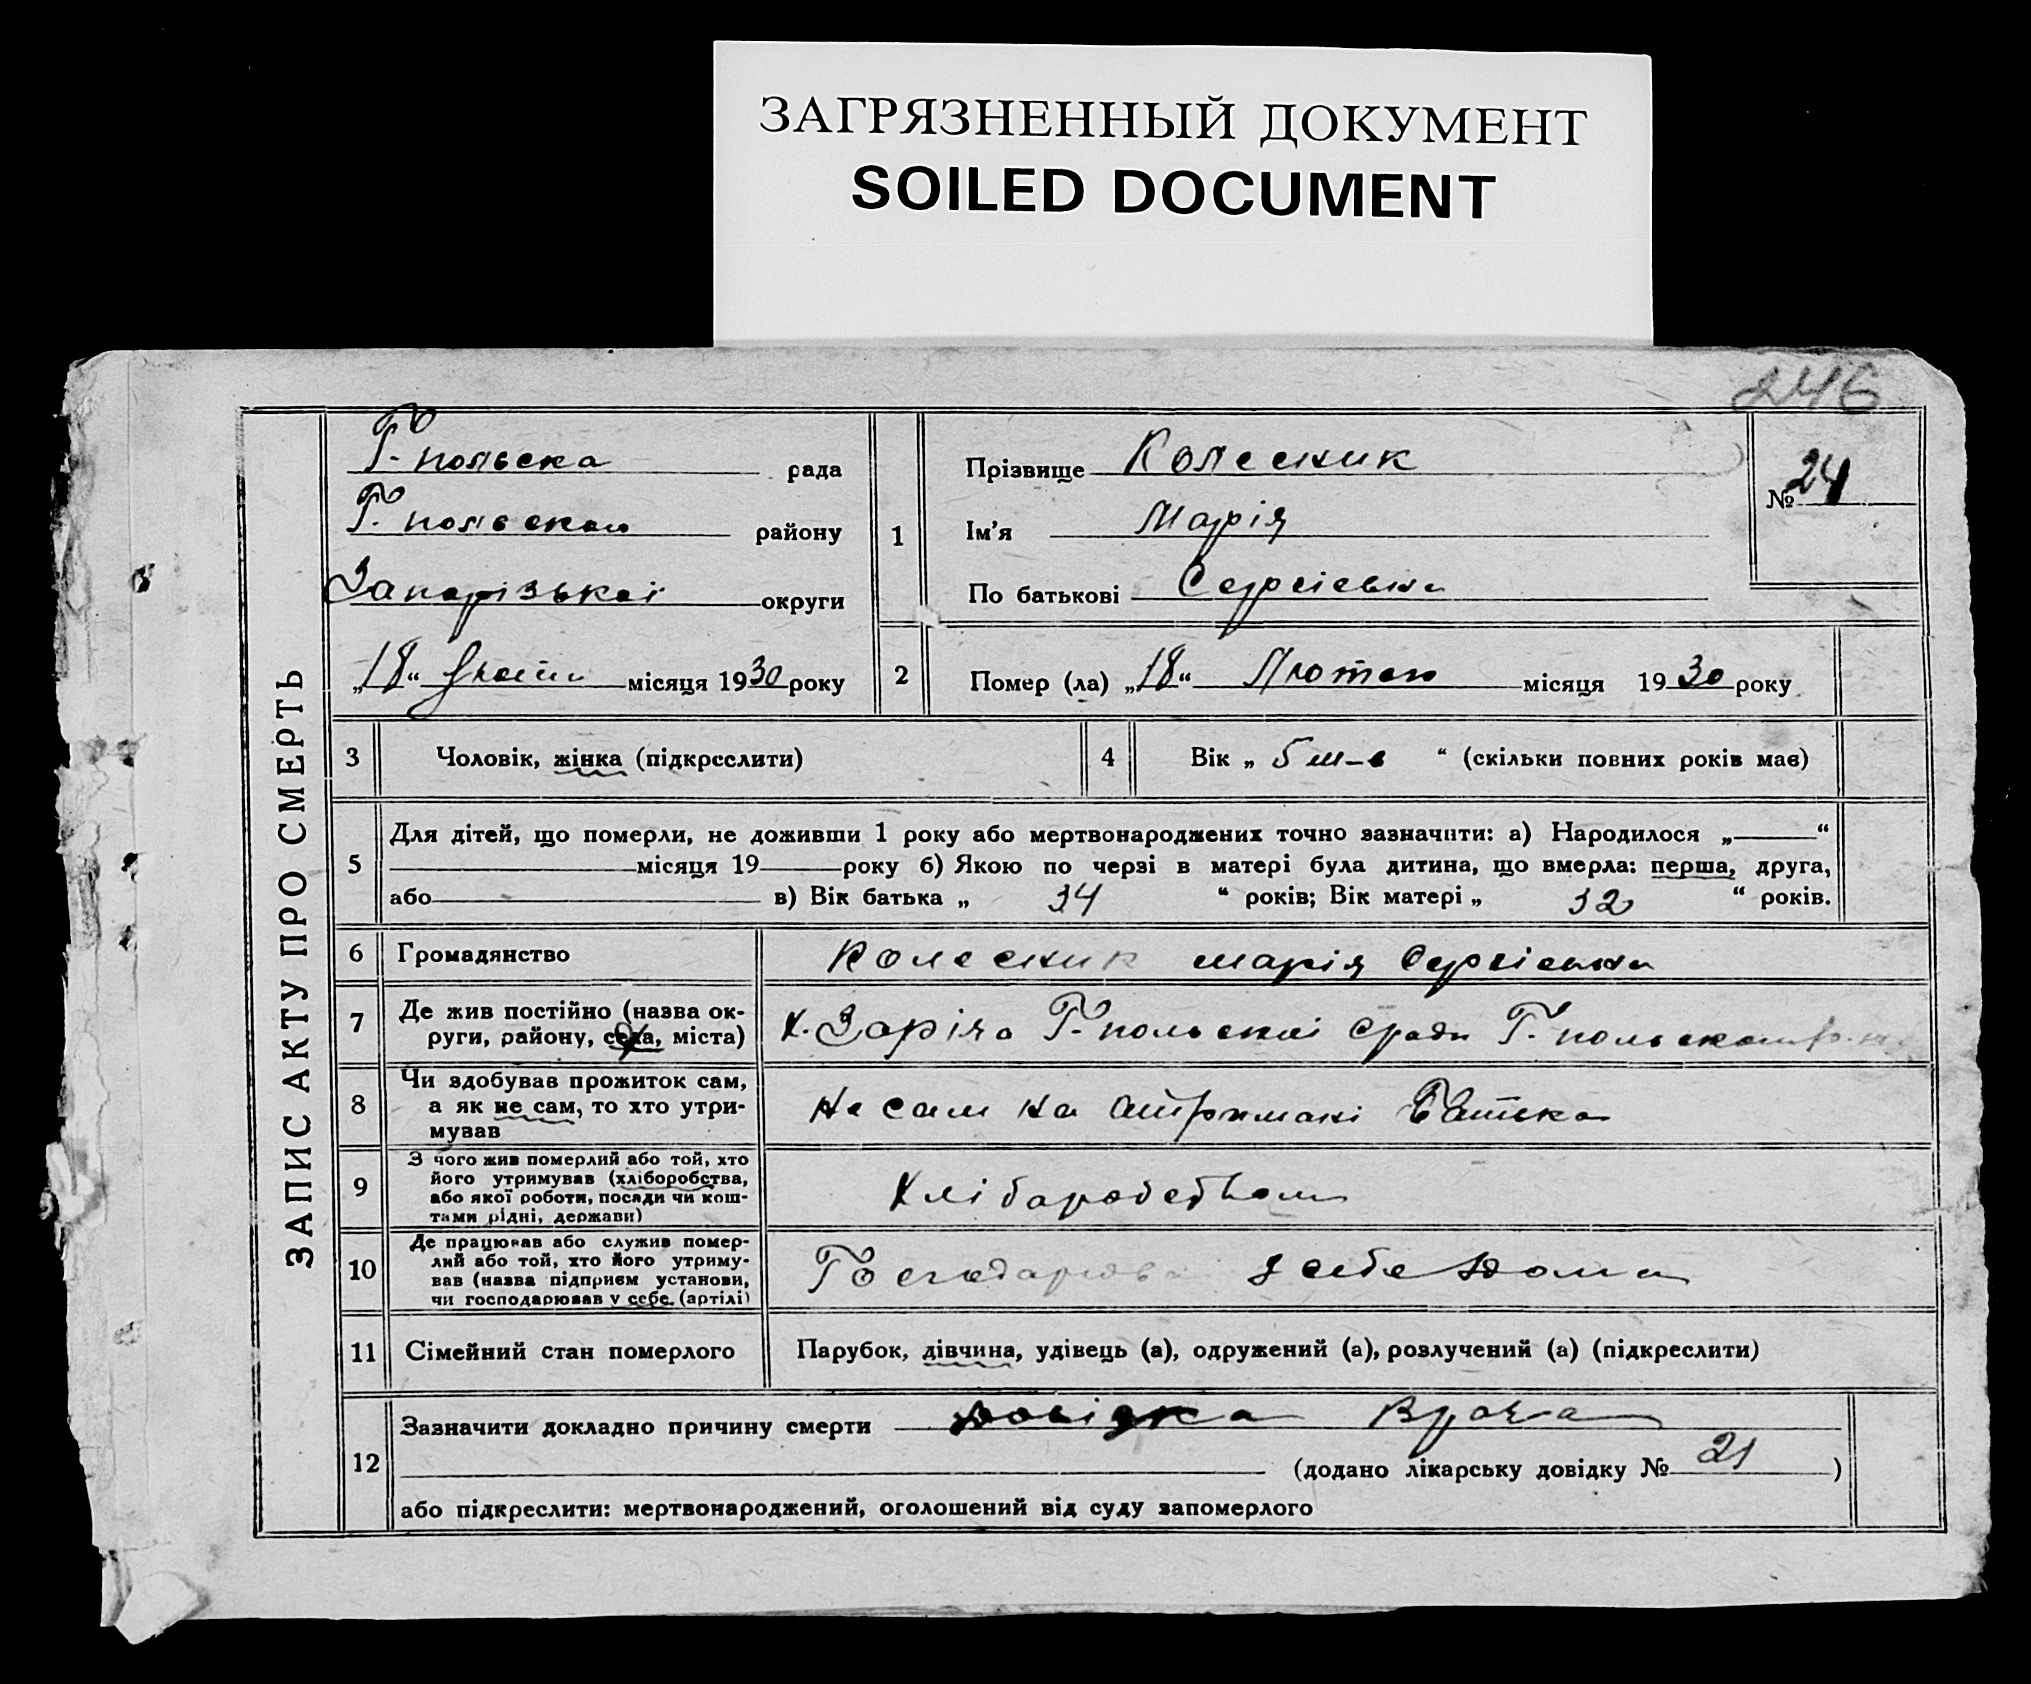 ЗАГРЯЗНЕННЫЙ ДОКУМЕНТ
SOILED DOCUMENT
246
ЗАПИС АКТУ ПРО СМЕРТЬ
Г-польска рада
Г. польського району
Запорізької округи
„18“ місяця 1930 року
1
Прізвище Колесник
Ім'я Марія
По батькові Сергіевна
№ 24
2 Помер (ла) „18“ Лютого місяця 1930 року
3 Чоловік, жінка (підкреслити)
4 Вік „ 5 м-в “ (скільки повних років має)
5 Для дітей, що померли, не доживши 1 року або мертвонароджених точно зазначити: а) Народилося „ “
місяця 19 року б) Якою по черзі в матері була дитина, що вмерла: перша, друга,
або в) Вік батька „ 34 “ років; Вік матері „ 32 “ років.
6 Громадянство Колесник марія Сергіевна
7 Де жив постійно (назва ок-
руги, району, села, міста)
х. Зоріча Г-польскої с/ради Г. польского р-н
8 Чи здобував прожиток сам,
а як не сам, то хто утри-
мував
Не сам на Батька
9 З чого жив померлий або той, хто
його утримував (хліборобства,
або якої роботи, посади чи кош-
тами рідні, держави)
Хліборобством
10 Де працював або служив помер-
лий або той, хто його утриму-
вав (назва підприєм установи,
чи господарював у себе (артілі)
Господарював у себе дома
11 Сімейний стан померлого Парубок, дівчина, удівець (а), одружений (а), розлучений (а) (підкреслити)
12 Зазначити докладно причину смерти довідка Врача
(додано лікарську довідку № 21 )
або підкреслити: мертвонароджений, оголошений від суду запомерлого